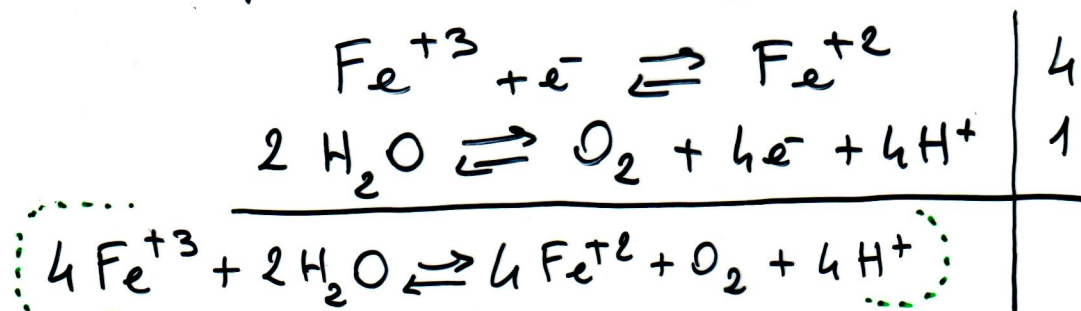 Fe⁺³ + e⁻ ⇌ Fe⁺² | 4
2 H₂O ⇌ O₂ + 4e⁻ + 4H⁺ | 1
4 Fe⁺³ + 2H₂O ⇌ 4 Fe⁺² + O₂ + 4 H⁺